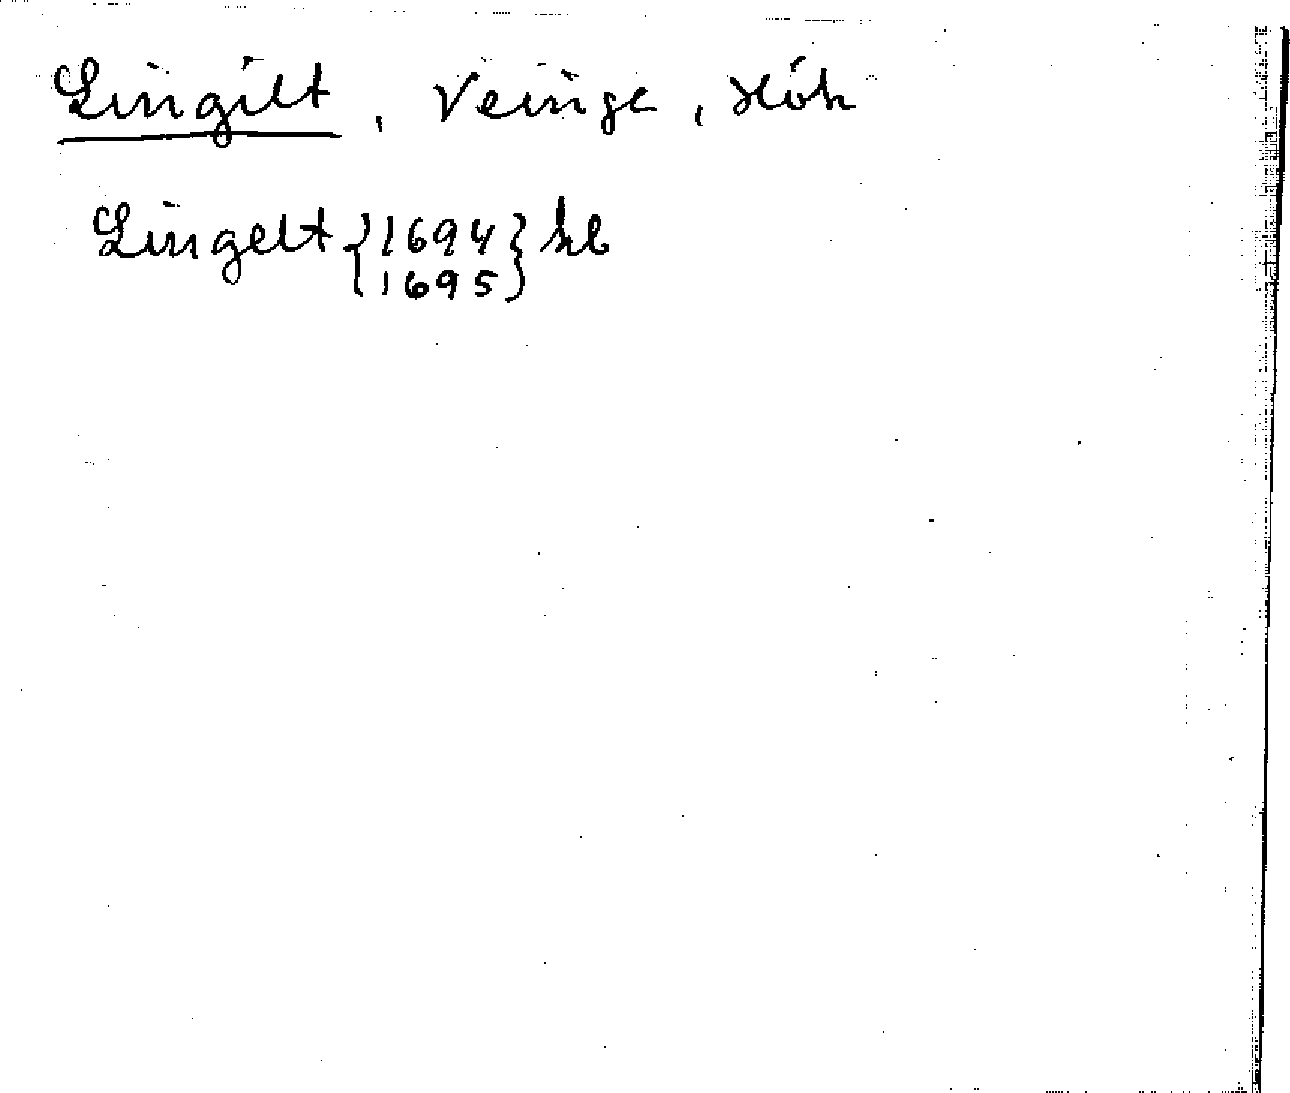 Lingilt, Veinge, Hök
Lingelt {1694} kb
{1695}